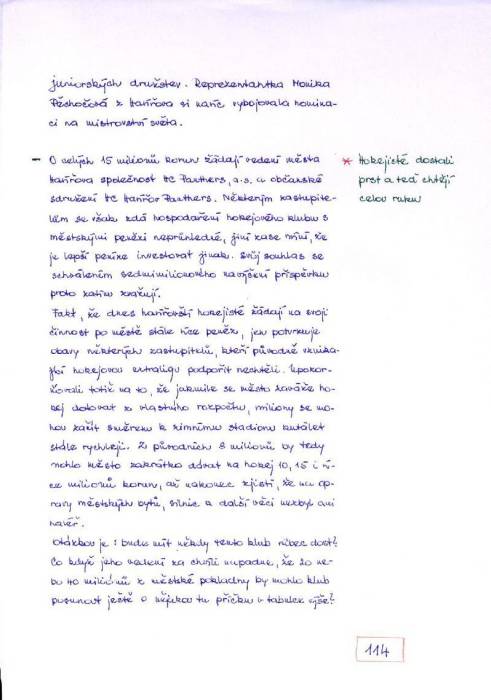 juniorských družstev. Reprezentantka Monika
Pěchočová z Havířova si navíc vybojovala nomina-
ci na mistrovství světa.
- O celých 15 milionů korun žádají vedení města
Havířova společnost HC Panthers, a.s. a občanské
sdružení HC Havířov Panthers. Některým zastupite-
lům se však zdá hospodaření hokejového klubu s
městskými penězi neprůhledné, jiní zase míní, že
je lepší peníze investovat jinak. Svůj souhlas se
schválením sedmimilionového navýšení příspěvku
proto zatím zvažují.
Fakt, že dnes havířovští hokejisté žádají na svoji
činnost po městě stále více peněz, jen potvrzuje
obavy některých zastupitelů, kteří původně
hokejovou extraligu podpořit nechtěli. Upozor-
ňovali totiž na to, že jakmile se město zaváže ho-
kej dotovat z vlastního rozpočtu, miliony se mo-
hou začít směrem k zimnímu stadionu kutálet
stále rychleji. Z původních 8 milionů by tedy
mohlo město zakrátko dávat na hokej 10, 15 i ví-
ce milionů korun, až nakonec zjistí, že na op-
ravy městských bytů, silnic a další věci nezbyl ani
haléř.
Otázkou je: bude mít někdy tento klub vůbec dost?
Co když jeho vedení za chvíli napadne, že 20 ne-
bo 40 milionů z městské pokladny by mohlo klub
posunout ještě o nějakou tu příčku v tabulce výše?
* Hokejisté dostali
prst a teď chtějí
celou ruku
114